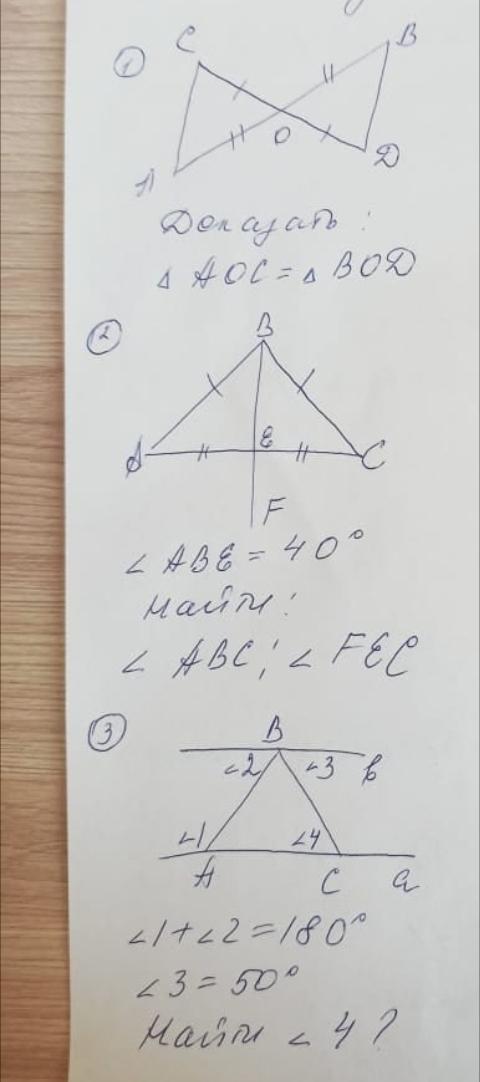 1
C
B
O
A
D
Доказать:
△ AOC = △ BOD
2
B
A
E
C
F
∠ ABE = 40°
Найти:
∠ ABC; ∠ FEC
3
B
∠2 ∠3 b
∠1 ∠4
A C a
∠1+∠2=180°
∠3=50°
Найти ∠4?